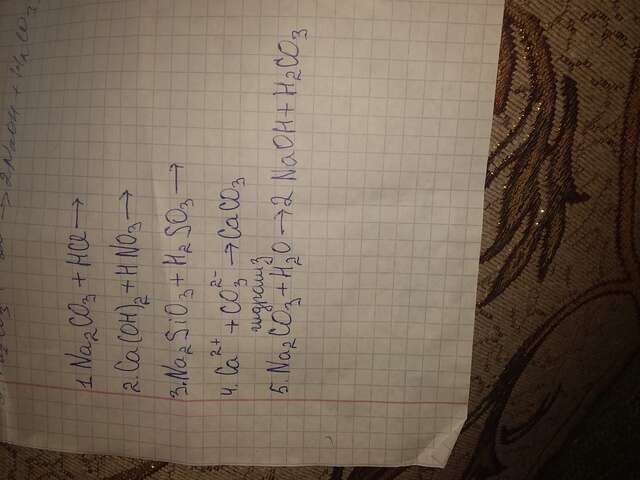 → 2NaOH + H₂CO₃
1. Na₂CO₃ + HCl →
2. Ca(OH)₂ + HNO₃ →
3. Na₂SiO₃ + H₂SO₃ →
4. Ca²⁺ + CO₃²⁻ → CaCO₃
гидролиз
5. Na₂CO₃ + H₂O → 2 NaOH + H₂CO₃